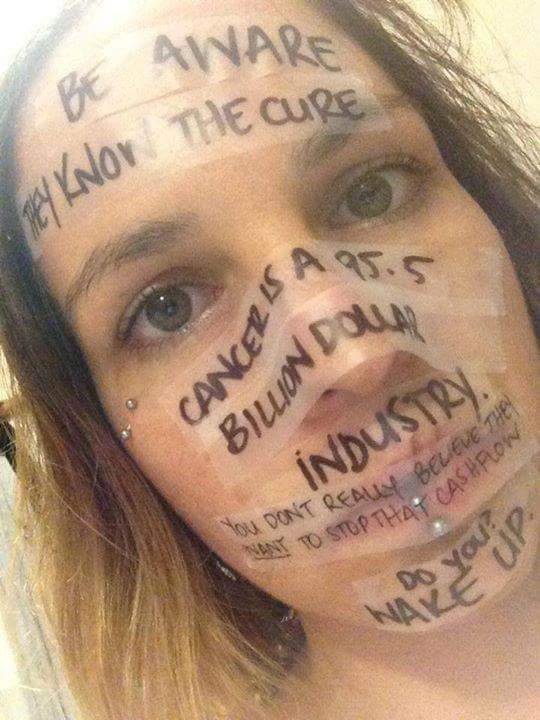 BE AWARE
THEY KNOW THE CURE
CANCER IS A 95.5
BILLION DOLLAR
INDUSTRY.
YOU DON'T REALLY BELIEVE THEY
WANT TO STOP THAT CASHFLOW
DO YOU?
WAKE UP.